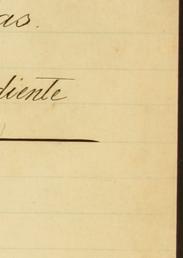 as.
diente